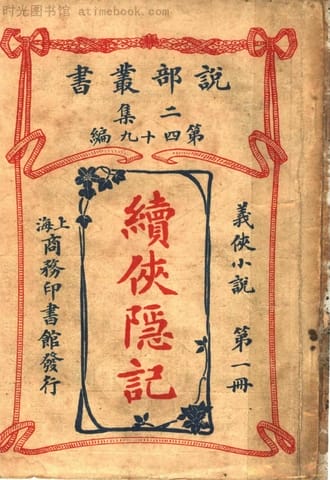 时光图书馆 atimebook.com
說部叢書
二集
第四十九編
義俠小說 第一冊
續俠隱記
上海商務印書館發行